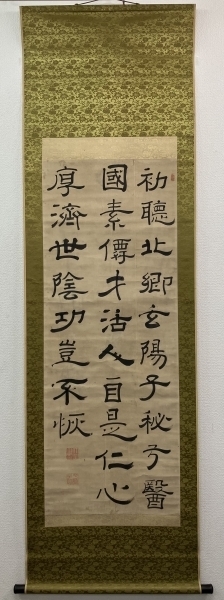 初聽北鄉玄陽子秘方醫
國素儒才活人自是仁心
厚濟世陰功豈不恢